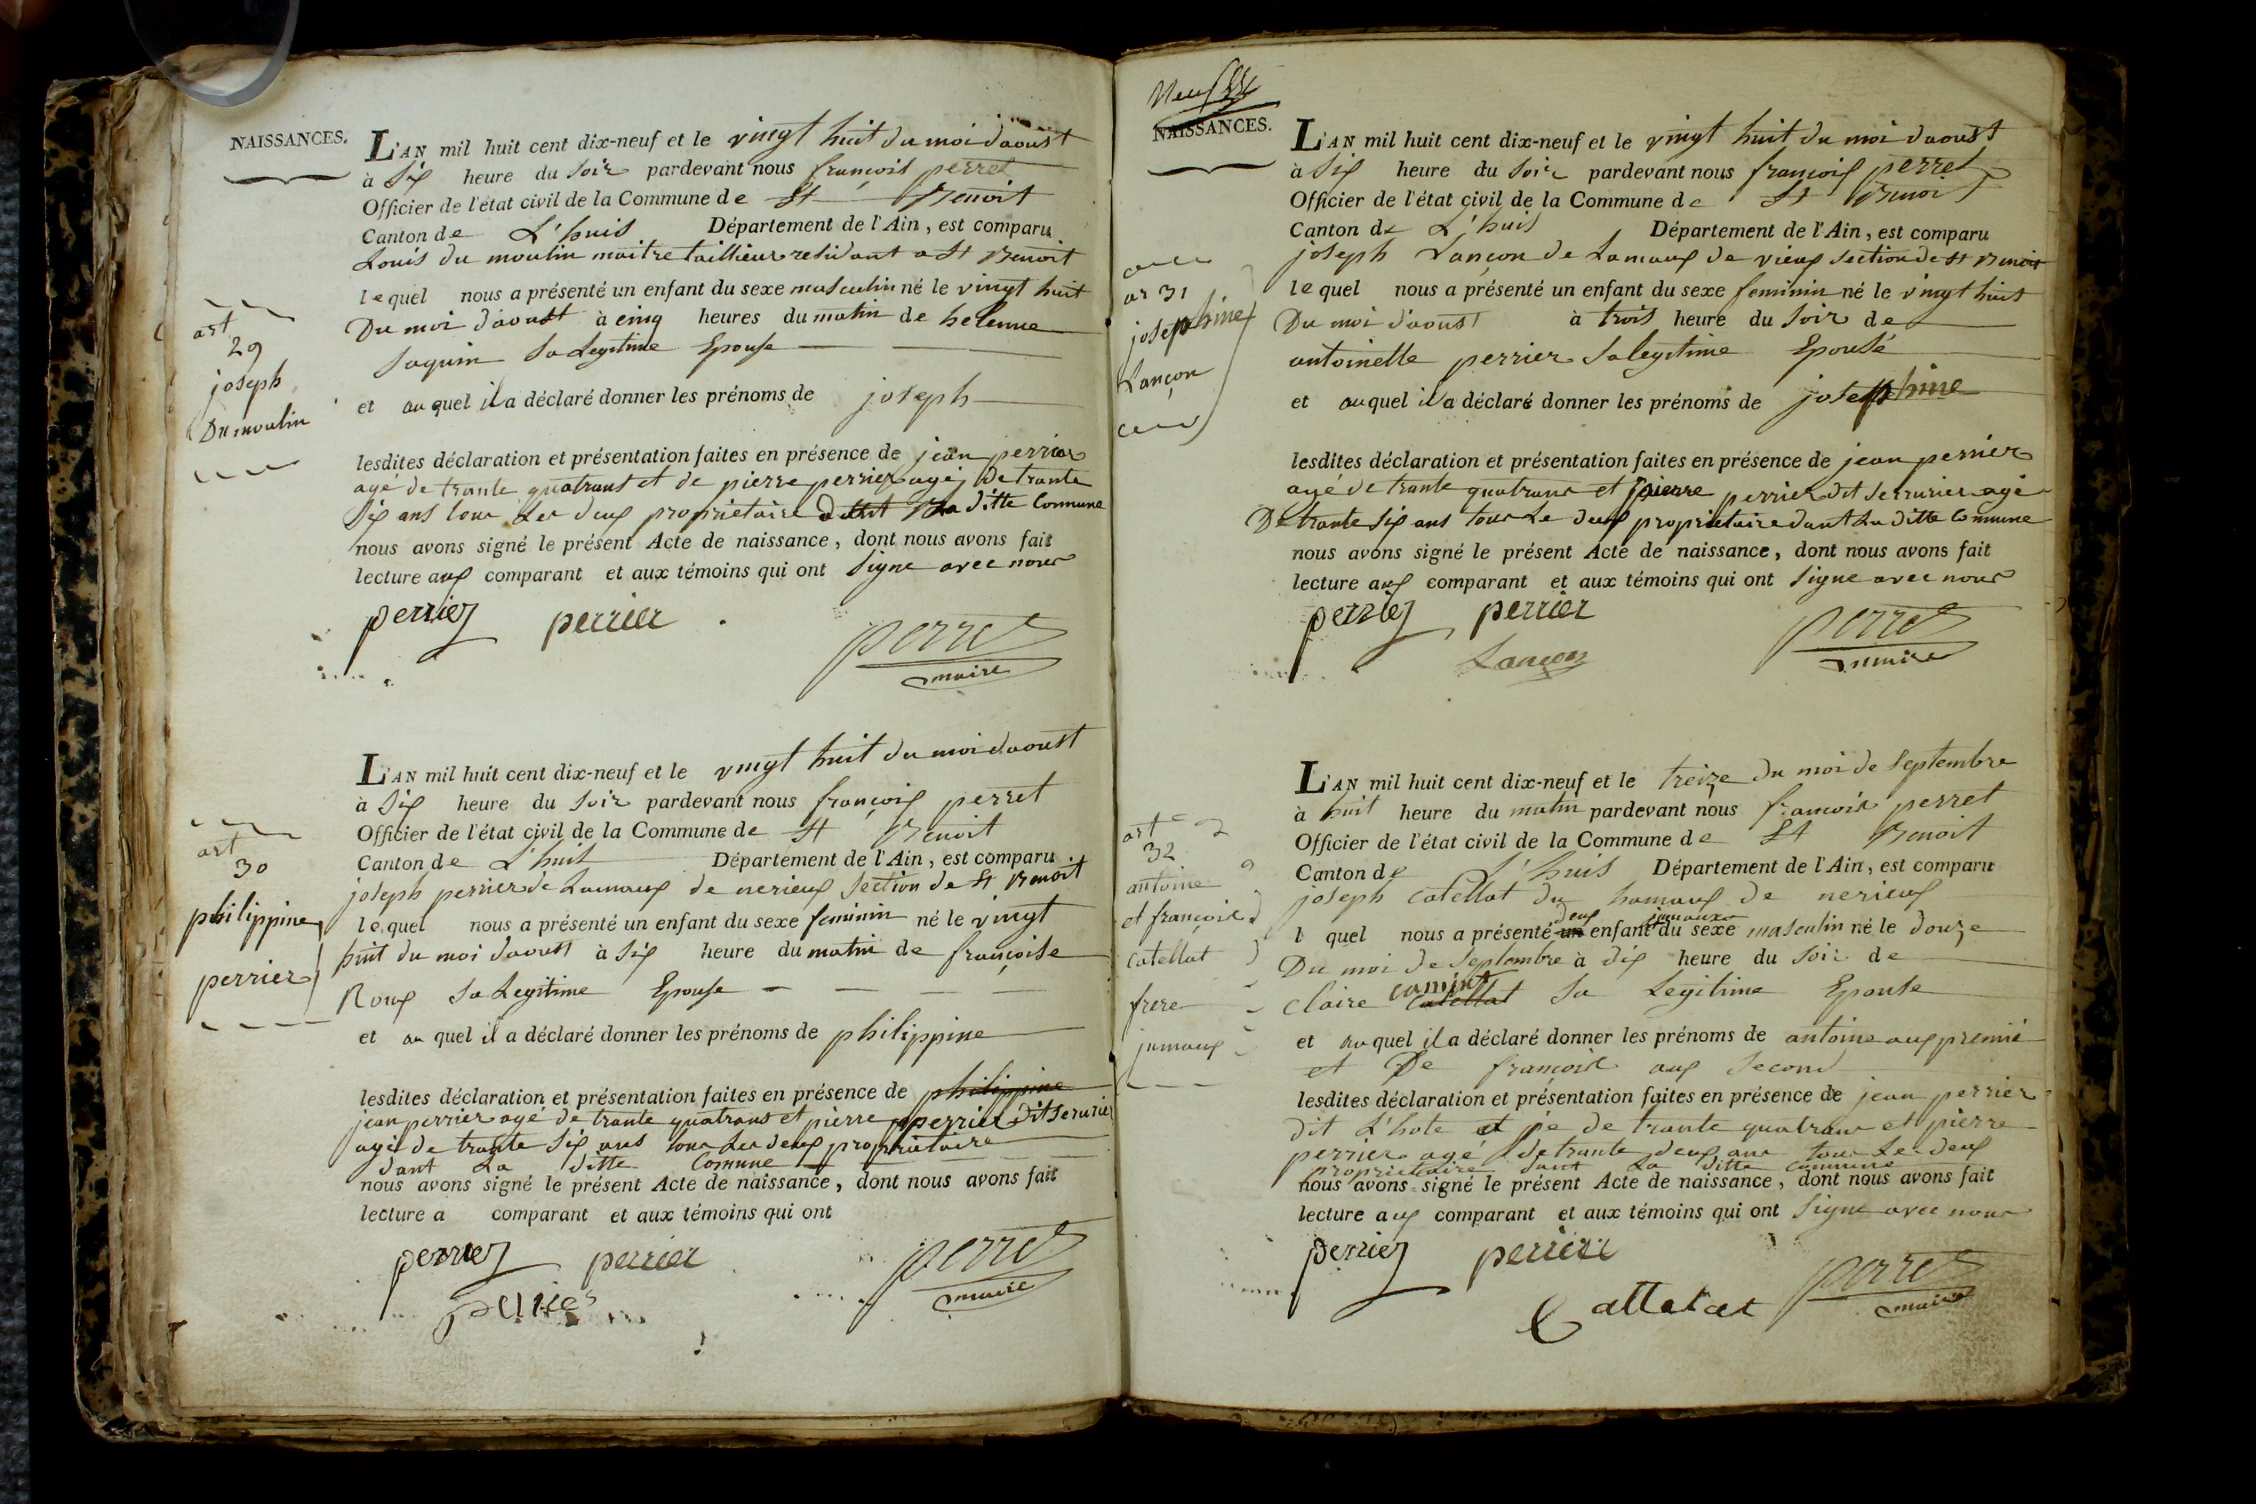 NAISSANCES.
L'AN mil huit cent dix-neuf et le vingt huit du moi daoust
à Six heure du Soir pardevant nous françois perret
Officier de l'état civil de la Commune de St Benoit
Canton de L'huis Département de l'Ain, est comparu
Louis du moulin maitre taillieur residant a St Benoit
lequel nous a présenté un enfant du sexe masculin né le vingt huit
Du moi daoust à cinq heures du matin de helenne
Saquin Sa Legitime Epouse
et au quel il a déclaré donner les prénoms de joseph
art
29
joseph
Dumoulin
lesdites déclaration et présentation faites en présence de jean perrier
agé de trante quatrans et de pierre perrier agé De trante
Six ans tous Les deux proprietaire La ditte Commune
nous avons signé le présent Acte de naissance, dont nous avons fait
lecture aux comparant et aux témoins qui ont Signe avec nous
perrier perrier
perret
maire
L'AN mil huit cent dix-neuf et le vingt huit du moi daoust
à Six heure du Soir pardevant nous françois perret
Officier de l'état civil de la Commune de St Benoit
Canton de L'huis Département de l'Ain, est comparu
joseph perrier de Lamaux de nerieux Section de St Benoit
lequel nous a présenté un enfant du sexe feminin né le vingt
huit du moi daoust à Six heure du matin de françoise
Roux Sa Legitime Epouse
et au quel il a déclaré donner les prénoms de philippine
art
30
philippine
perrier
lesdites déclaration et présentation faites en présence de philippine
jean perrier agé de trante quatrans et pierre perrier dit Serurier
agé de trante Six ans tous Les deux proprietaire
dant La ditte Comune
nous avons signé le présent Acte de naissance, dont nous avons fait
lecture a comparant et aux témoins qui ont
perrier perrier
perret
perrier
maire
NAISSANCES.
L'AN mil huit cent dix-neuf et le vingt huit du moi daoust
à Six heure du Soir pardevant nous françois perret
Officier de l'état civil de la Commune de St Benoit
Canton de L'huis Département de l'Ain, est comparu
joseph Lançon de Lamaux de vieux Section de St Benoit
lequel nous a présenté un enfant du sexe feminin né le vingt huit
Du moi daoust à trois heure du Soir de
antoinette perrier Salegitime Epouse
et auquel il a déclaré donner les prénoms de josephine
ar 31
josephine
Lançon
lesdites déclaration et présentation faites en présence de jean perrier
agé de trante quatrans et pierre perrier dit Serrurier agé
De trante Six ans tous Le deux proprietaire dant La ditte Commune
nous avons signé le présent Acte de naissance, dont nous avons fait
lecture aux comparant et aux témoins qui ont Signe avec nous
perrier perrier
perret
Lançon
maire
L'AN mil huit cent dix-neuf et le treize du moi de Septembre
à huit heure du matin pardevant nous françois perret
Officier de l'état civil de la Commune de St Benoit
Canton de L'huis Département de l'Ain, est comparu
joseph catellat du hamaux de nerieux
deux jumaux
l quel nous a présenté un enfant du sexe masculin né le douze
Du moi de Septembre à dix heure du Soir de
claire catellat Sa Legitime Epouse
et auquel il a déclaré donner les prénoms de antoine aux premié
et De françois aux Second
art
32
antoine
et françois
catellat
frere
jumaux
lesdites déclaration et présentation faites en présence de jean perrier
dit L'hote de trante quatrans et pierre
perrier agé de trante deux ans tous Le deux
proprietaire dant La ditte commune
nous avons signé le présent Acte de naissance, dont nous avons fait
lecture aux comparant et aux témoins qui ont Signe avec nous
perrier perrier
perret
Cattelat
maire